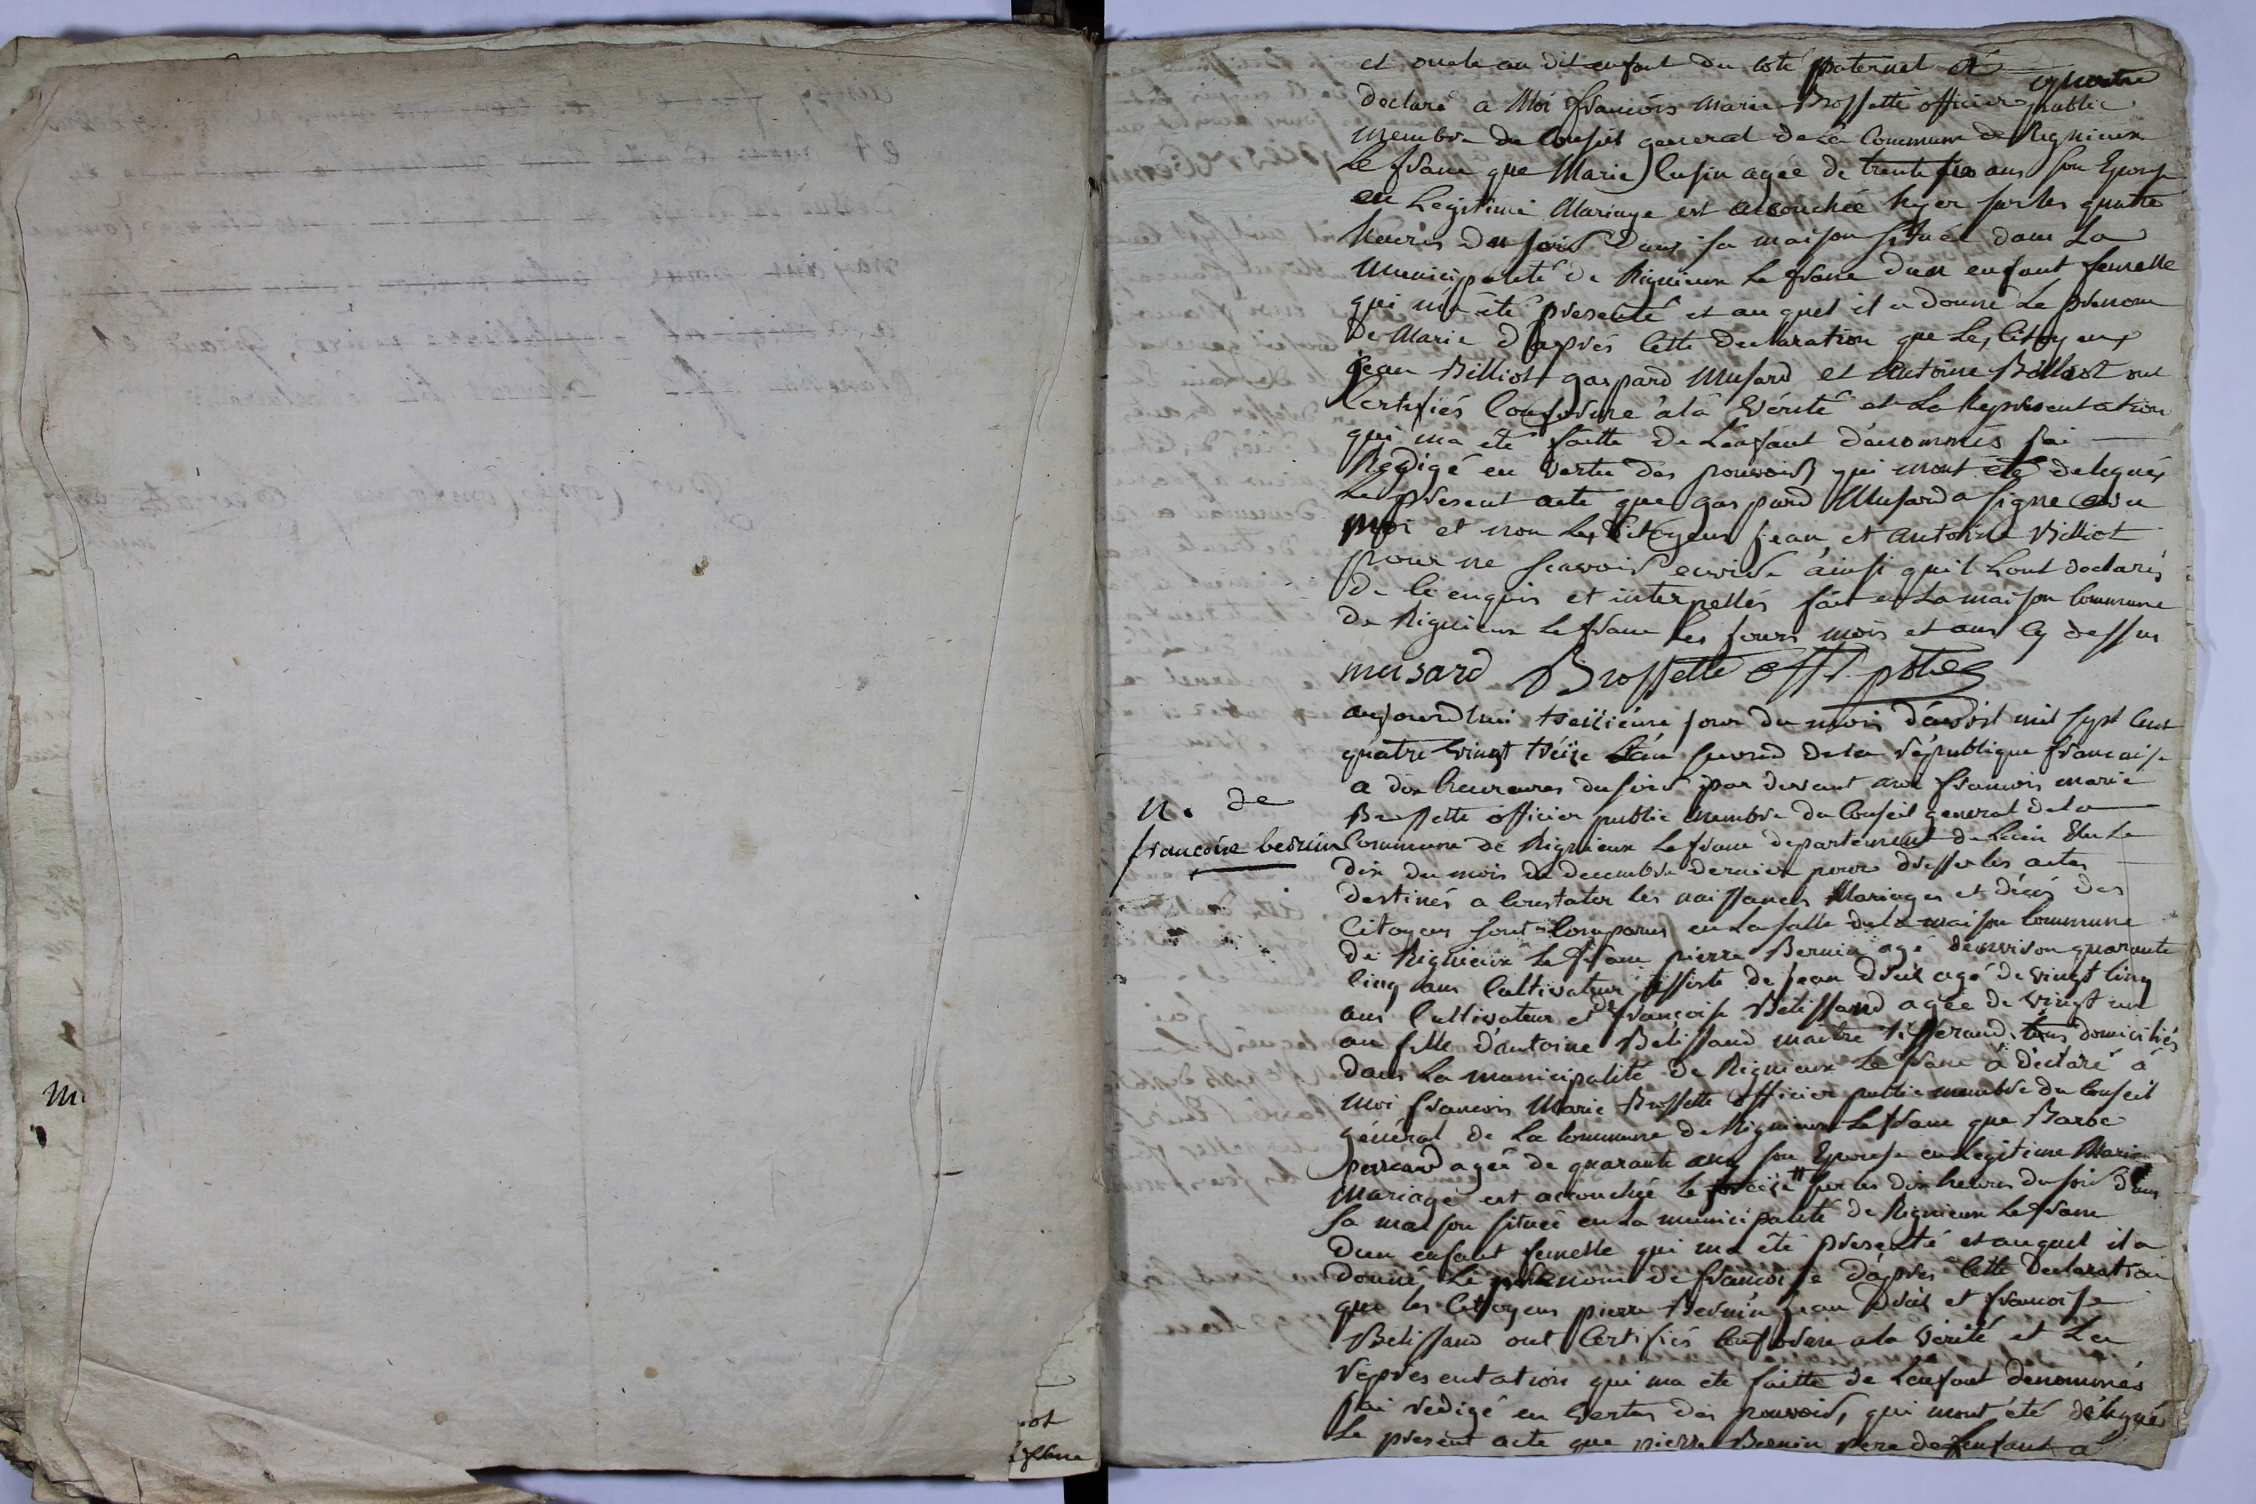 et oncle au dit enfant du coté paternel et
declaré a Moi françois marie Brossette officier public
membre du Conseil general de La Commune de Rignieux
Le franc que Marie Cusin agée de trente ans son Epouse
en Legitime Mariage est accouchée hyer sur les quatre
heures du soir Dans sa maison située dans La
Municipalité de Rignieux Le franc dun enfant femelle
qui ma été presenté et au quel il a donné Le prenom
De Marie d'après Cette Declaration que Les Citoyens
jean Billiot gaspard Musard et Antoine Billiot ont
Certifiés Conforme à la Vérité et La Représentation
qui ma été faitte de L'enfant dénommés j'ai
Redigé en vertu des pouvoirs qui mont été delegués
Le present acte que gaspard Musard a signé avec
moi et non Les Citoyens jean et antoine Billiot
pour ne scavoir ecrire ainsi quil Lont declarés
de ce enquis et interpellés fait en La maison Commune
de Rignieux Le franc Les jours mois et ans Cy dessus
musard Brossette off. p
aujourdhui treizième jour du mois d'avril mil sept Cent
quatre Vingt treize L'an second de la république francaise
a dix heureures du soir par devant moi francois marie
N. de
Brossette officier public membre du Conseil general de la
francoise bernin
Commune de Rignieux Le franc departement de Lain Elu Le
dix du mois de decembre dernier pour dresser les actes
destinés a Constater les naissances Mariages et décés des
Citoyens sont Comparus en La salle de la maison Commune
de Rignieux Le franc pierre Bernin agé denviron quarante
cinq ans Cultivateur assisté de jean agé de vingt cinq
ans Cultivateur et de françoise Bélissand agée de vingt un
an fille d'antoine Bélissand maitre tisserand tous domiciliés
dans La municipalité de Rignieux Le franc a déclaré à
Moi francois Marie Brossette officier public membre du Conseil
général de La Commune de Rignieux Le franc que Barbe
agée de quarante ans son Epouse en Legitime
Mariage est accouchée Le sur les dix heures du soir dans
sa maison située en La municipalité de Rignieux Le franc
dun enfant femelle qui ma été presenté et auquel il a
donné Le prenom de francoise d'apres Cette Declaration
que les Citoyens pierre Bernin jean et francoise
Belissand ont Certifiés Conforme a la Vérité et La
représentation qui ma été faitte de L'enfant denommés
jai redigé en vertus des pouvoirs qui mont été délégués
Le present acte que pierre Bernin pere de Lenfant a